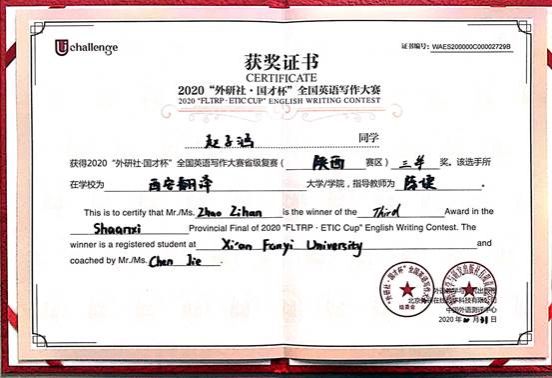 Uchallenge
证书编号：WAES200000C00002729B
获奖证书
CERTIFICATE
2020 “外研社·国才杯”全国英语写作大赛
2020 "FLTRP · ETIC CUP" ENGLISH WRITING CONTEST
赵子涵 同学
获得2020 “外研社·国才杯”全国英语写作大赛省级复赛（ 陕西 赛区） 三等 奖。该选手所
在学校为 西安翻译 大学/学院，指导教师为
This is to certify that Mr./Ms. Zhao Zihan is the winner of the Third Award in the
Shaanxi Provincial Final of 2020 "FLTRP · ETIC Cup" English Writing Contest. The
winner is a registered student at Xi'an Fanyi University and
coached by Mr./Ms. Chen Jie.
组委会
中国外语测评中心
2020 年